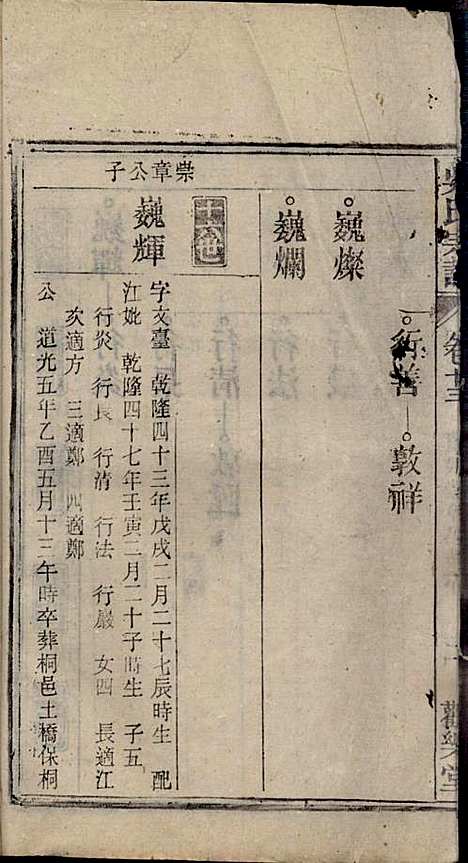 氏宗譜 卷十三
觀樂堂
行善 敦祥
巍燦
巍爛
十八世
崇章公子
巍輝
字文臺 乾隆四十三年戊戌二月二十七辰時生 配
江妣 乾隆四十七年壬寅二月二十子時生 子五
行炎 行長 行清 行法 行嚴 女四 長適江
次適方 三適鄭 四適鄭
公 道光五年乙酉五月十三午時卒葬桐邑土橋保桐